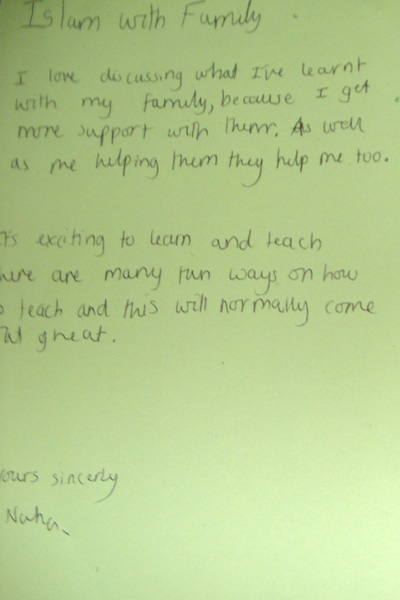 Islam with Family
I love discussing what I've learnt
with my family, because I get
more support with them. As well
as me helping them they help me too.
ts exciting to learn and teach
here are many fun ways on how
o teach and this will normally come
great.
yours sincerly
Naha